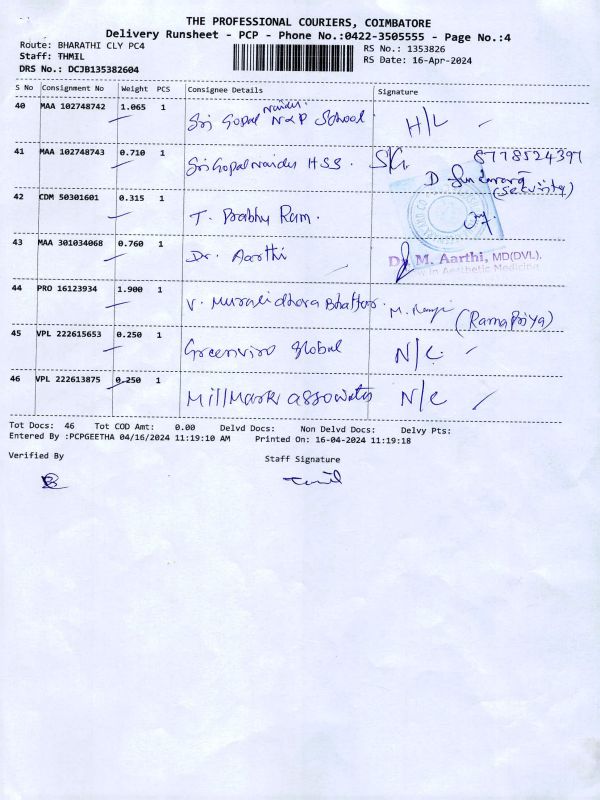 THE PROFESSIONAL COURIERS, COIMBATORE
Delivery Runsheet - PCP - Phone No.:0422-3505555 - Page No.:4
Route: BHARATHI CLY PC4 RS No.: 1353826
Staff: THMIL RS Date: 16-Apr-2024
DRS No.: DCJB135382604
S No Consignment No Weight PCS Consignee Details Signature
40 MAA 102748742 1.065 1 Sri Gopal Naidu N&P School H/L
41 MAA 102748743 0.710 1 Sri Gopal Naidu HSS. 8778524397
(Security)
42 CDM 50301601 0.315 1 T. Prabhu Ram.
43 MAA 301034068 0.760 1 Dr. Aarthi Dr. M. Aarthi, MD(DVL).
in Aesthetic Medicine
44 PRO 16123934 1.900 1 V. Muralidhara Bhattar. (Rama Priya)
45 VPL 222615653 0.250 1 Greenviro Global N/C.
46 VPL 222613875 0.250 1 Millmark associates N/C
Tot Docs: 46 Tot COD Amt: 0.00 Delvd Docs: Non Delvd Docs: Delvy Pts:
Entered By :PCPGEETHA 04/16/2024 11:19:10 AM Printed On: 16-04-2024 11:19:18
Verified By Staff Signature